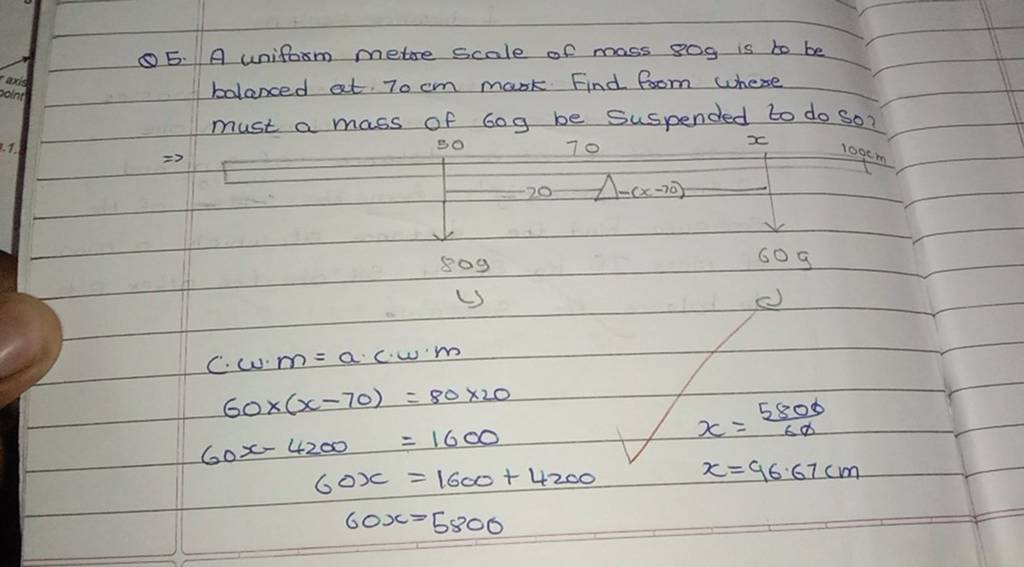 Q5. A uniform metre scale of mass 80g is to be
balanced at 70 cm mark. Find from where
must a mass of 60g be suspended to do so?
=>
50 70 x 100cm
20 (x-70)
80g 60g
c.w.m = a.c.w.m
60×(x-70) = 80×20
60x- 4200 = 1600
60x = 1600 + 4200
60x = 5800
x = 5800/60
x = 96.67 cm
axis
point
.1.